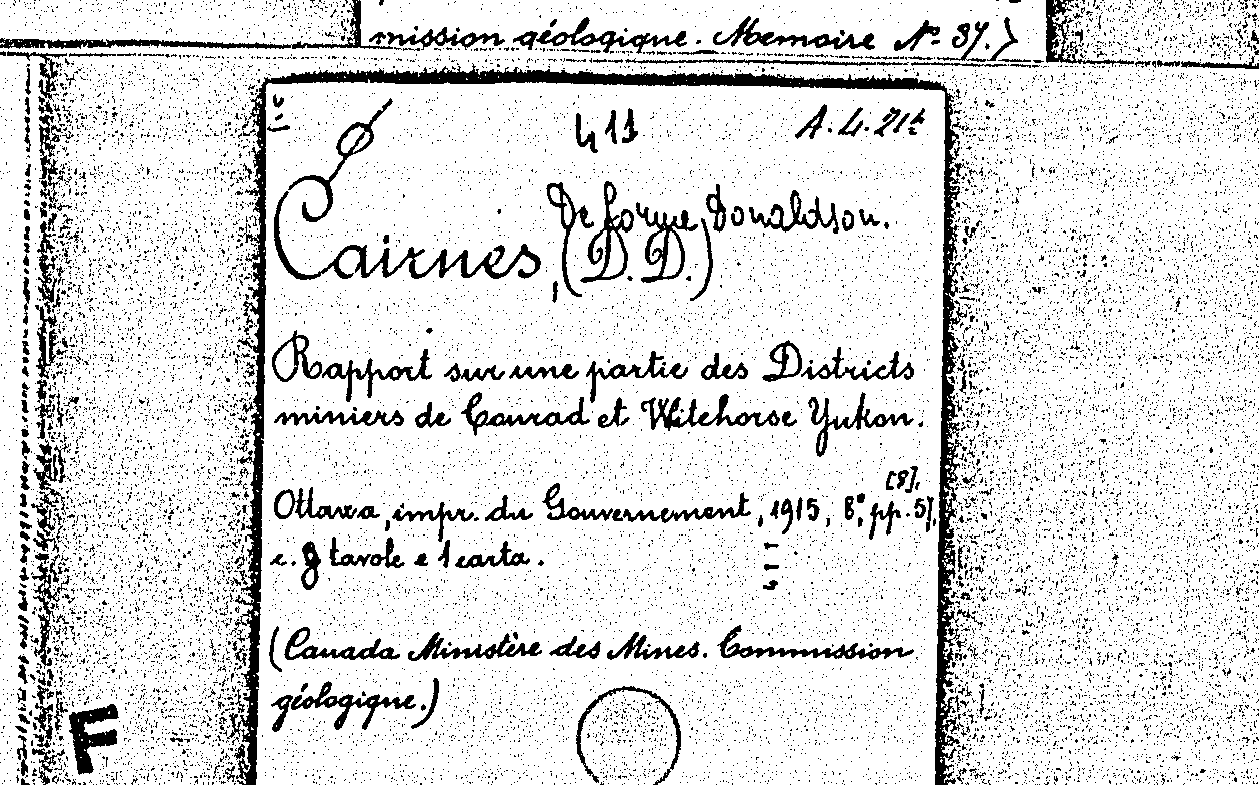 mission géologique. Memoire Nº 37.)
411
A.4.21t
De forme Donaldson.
Cairnes, (D. D.)
Rapport sur une partie des Districts
miniers de Conrad et Witehorse Yukon.
[8].
Ottawa, impr. du Gouvernement, 1915, 8°, pp. 57,
c. 8 tavole e 1 carta.
(Canada Ministère des Mines. Commission
géologique.)
F